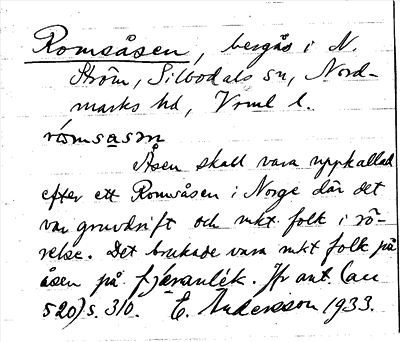 Romsåsen, bergås i N.
Ström, Silbodals sn, Nord-
marks hd, Vrml l.
römsasn
Åsen skall vara uppkallad
efter ett Romsåsen i Norge där det
var gruvdrift och mkt folk i rö-
relse. Det brukade vara mkt folk på
åsen på fjäranlék. Jfr ant. (acc
520) s. 310. E. Andersson 1933.